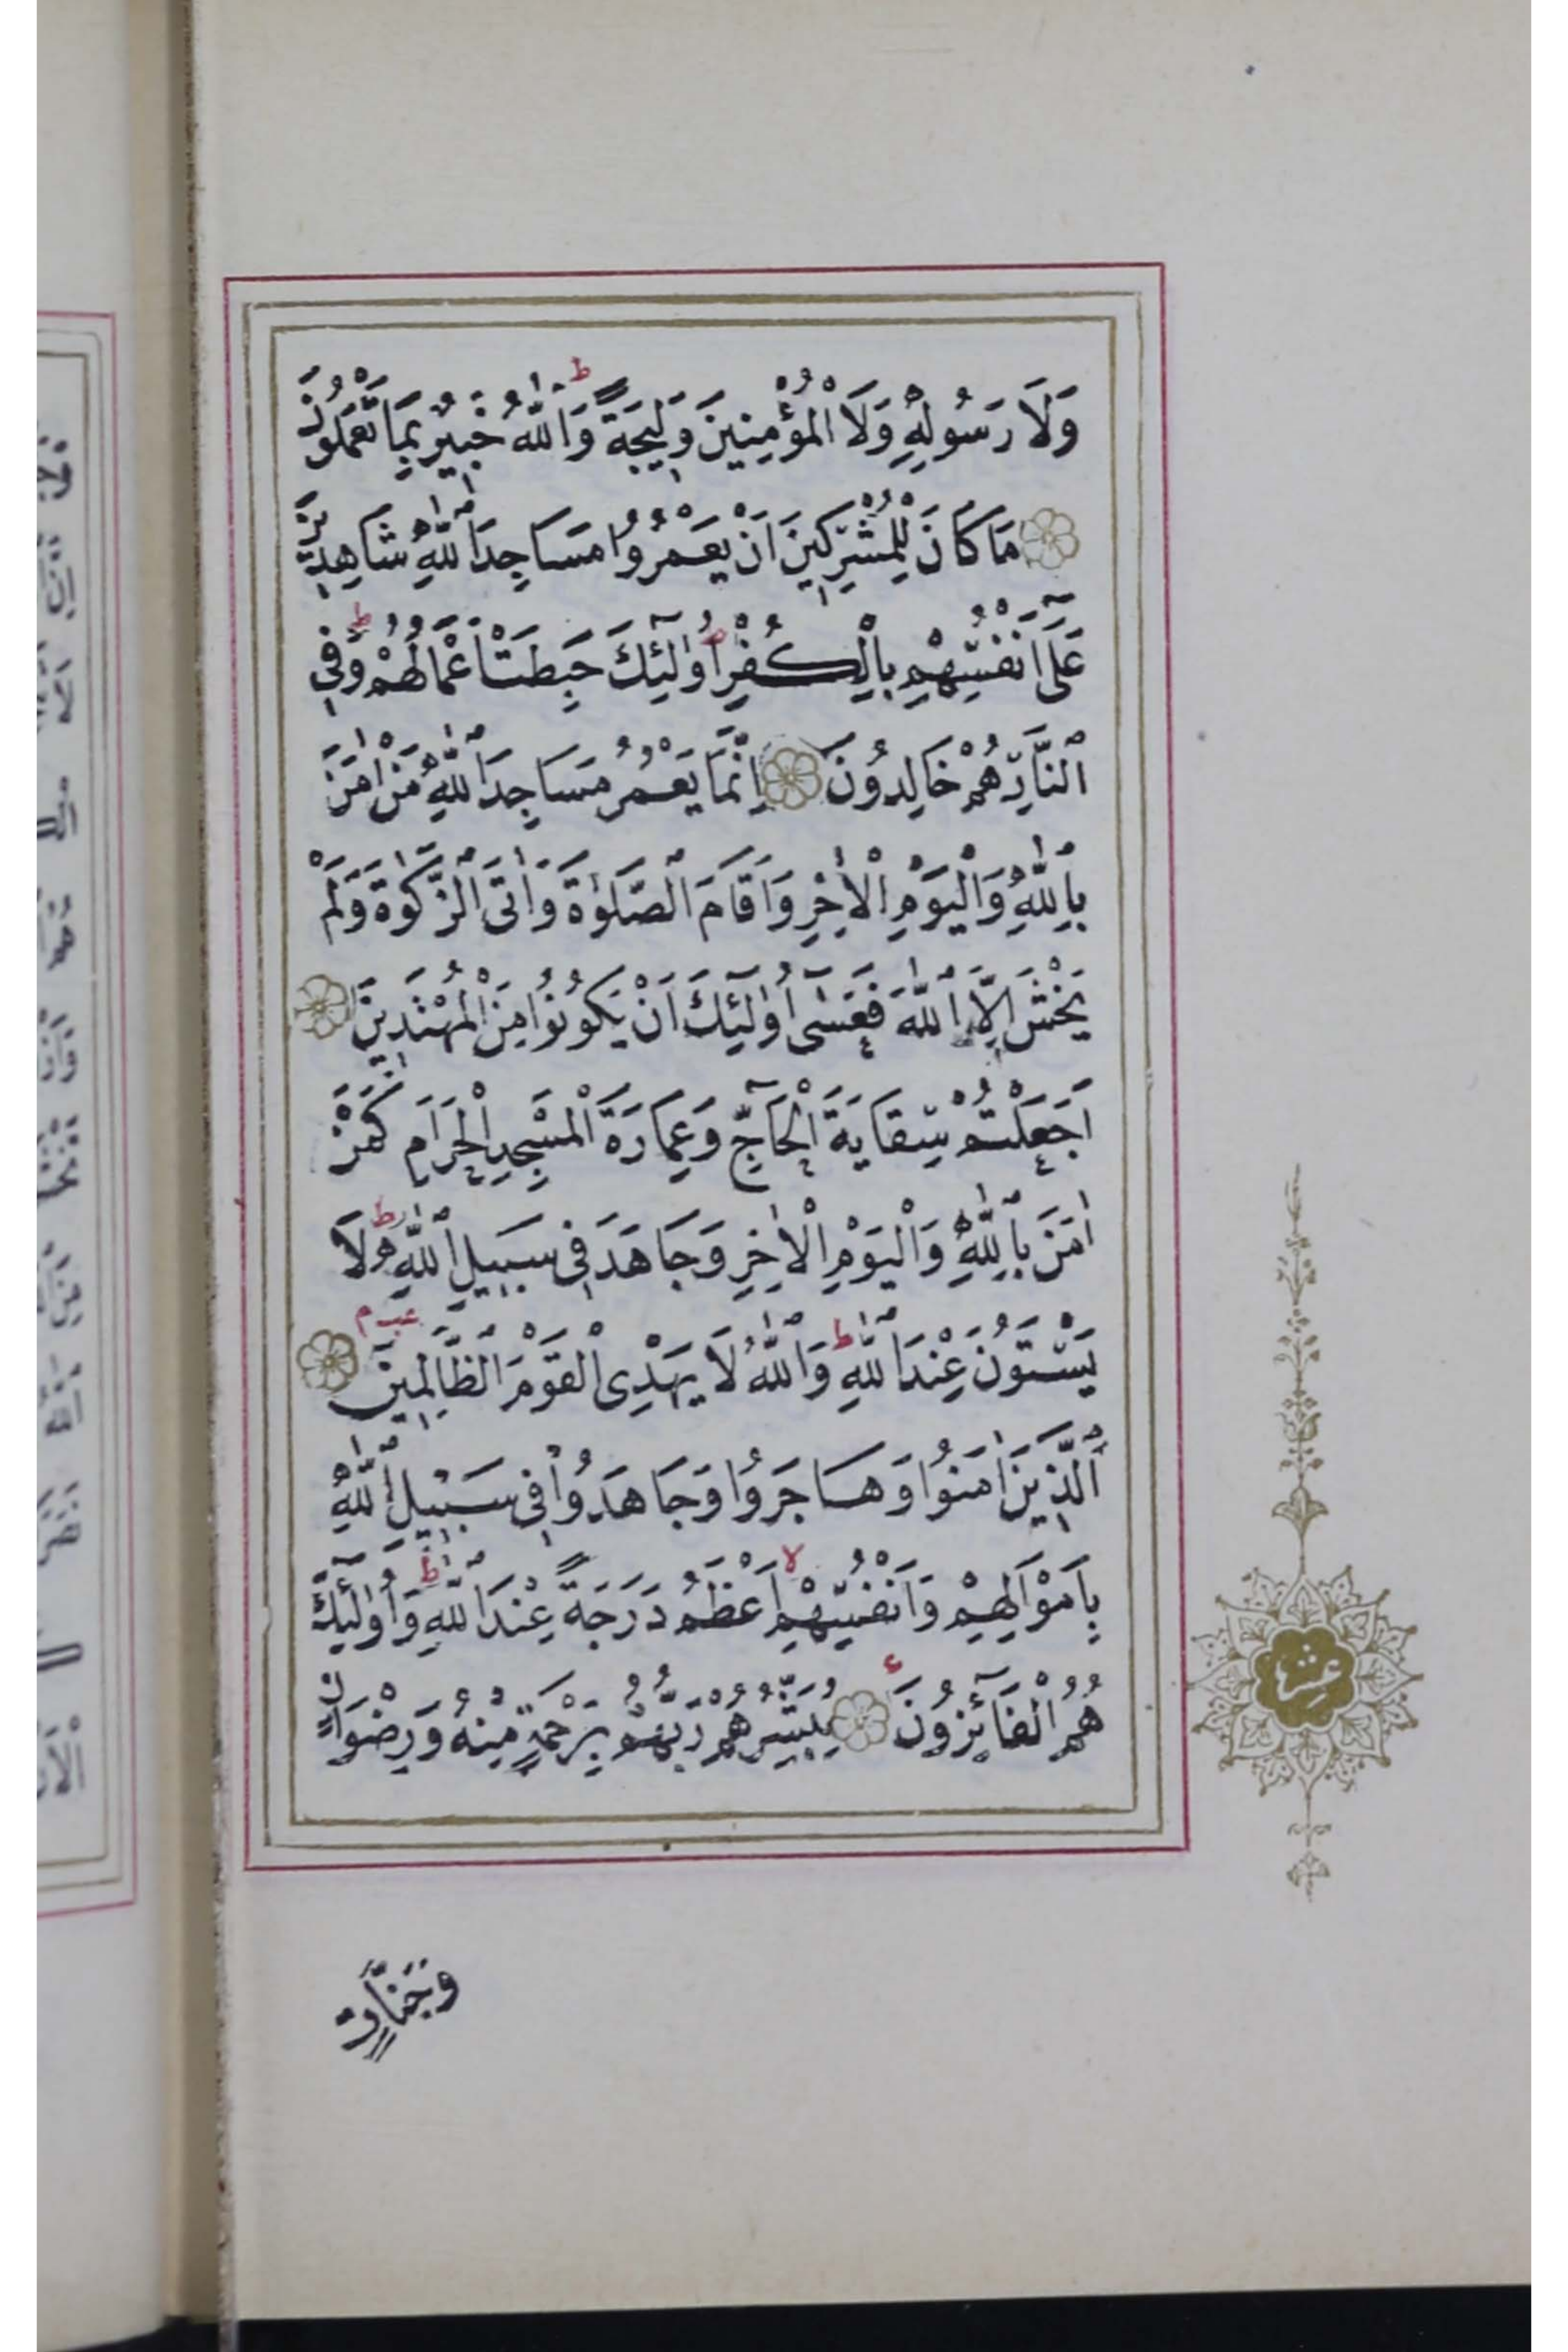 وَلَا رَسُولِهِ وَلَا الْمُؤْمِنِينَ وَلِيجَةً وَاللّٰهُ خَبِيرٌ بِمَا تَعْمَلُونَ
مَا كَانَ لِلْمُشْرِكِينَ اَنْ يَعْمُرُوا مَسَاجِدَ اللّٰهِ شَاهِدِينَ
عَلٰٓى اَنْفُسِهِمْ بِالْكُفْرِ اُولٰٓئِكَ حَبِطَتْ اَعْمَالُهُمْ وَفِي
النَّارِ هُمْ خَالِدُونَ اِنَّمَا يَعْمُرُ مَسَاجِدَ اللّٰهِ مَنْ اٰمَنَ
بِاللّٰهِ وَالْيَوْمِ الْاٰخِرِ وَاَقَامَ الصَّلٰوةَ وَاٰتَى الزَّكٰوةَ وَلَمْ
يَخْشَ اِلَّا اللّٰهَ فَعَسٰٓى اُولٰٓئِكَ اَنْ يَكُونُوا مِنَ الْمُهْتَدِينَ
اَجَعَلْتُمْ سِقَايَةَ الْحَآجِّ وَعِمَارَةَ الْمَسْجِدِ الْحَرَامِ كَمَنْ
اٰمَنَ بِاللّٰهِ وَالْيَوْمِ الْاٰخِرِ وَجَاهَدَ فِي سَبِيلِ اللّٰهِ لَا
يَسْتَوُنَ عِنْدَ اللّٰهِ وَاللّٰهُ لَا يَهْدِى الْقَوْمَ الظَّالِمِينَ
اَلَّذِينَ اٰمَنُوا وَهَاجَرُوا وَجَاهَدُوا فِي سَبِيلِ اللّٰهِ
بِاَمْوَالِهِمْ وَاَنْفُسِهِمْ اَعْظَمُ دَرَجَةً عِنْدَ اللّٰهِ وَاُولٰٓئِكَ
هُمُ الْفَآئِزُونَ يُبَشِّرُهُمْ رَبُّهُمْ بِرَحْمَةٍ مِنْهُ وَرِضْوَانٍ
عشر
وَجَنَّاتٍ